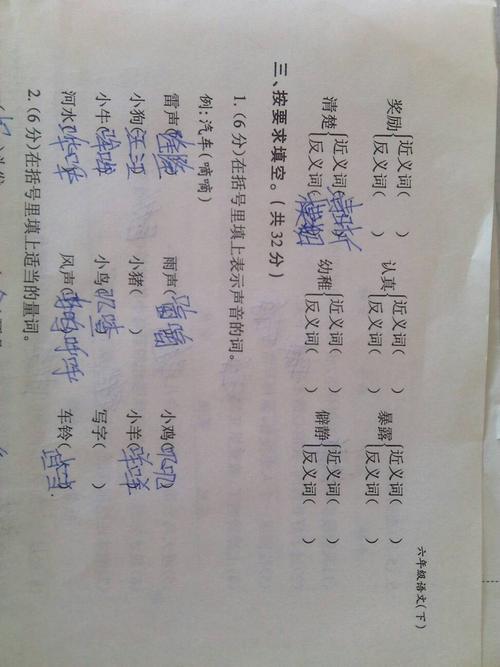 六年级语文(下)
奖励{近义词( ) 反义词( ) 认真{近义词( ) 反义词( ) 暴露{近义词( ) 反义词( )
清楚{近义词(清晰) 反义词(模糊) 幼稚{近义词( ) 反义词( ) 僻静{近义词( ) 反义词( )
三、按要求填空。(共32分)
1.(6分)在括号里填上表示声音的词。
例:汽车(嘀嘀)
雷声(隆隆) 雨声( 小鸡(叽叽)
小狗(汪汪) 小猪( ) 小羊(咩咩)
小牛( 小鸟( 写字( )
河水(哗哗) 风声(呼呼 车铃(
2.(6分)在括号里填上适当的量词。